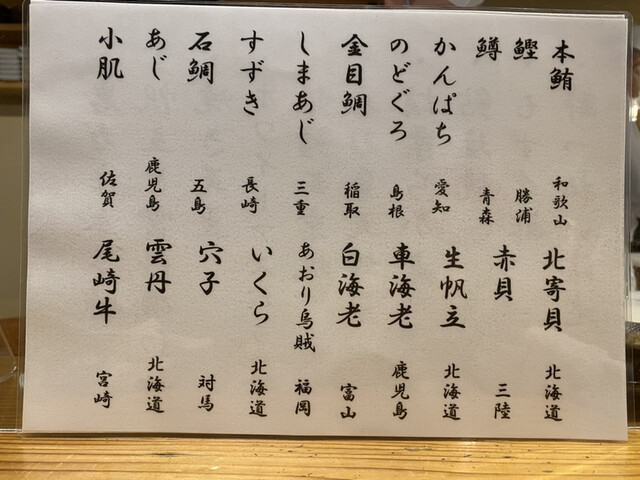 本鮪 和歌山
鰹 勝浦
鱒 青森
かんぱち 愛知
のどぐろ 島根
金目鯛 稲取
しまあじ 三重
すずき 長崎
石鯛 五島
あじ 鹿児島
小肌 佐賀
北寄貝 北海道
赤貝 三陸
生帆立 北海道
車海老 鹿児島
白海老 富山
あおり烏賊 福岡
いくら 北海道
穴子 対馬
雲丹 北海道
尾崎牛 宮崎